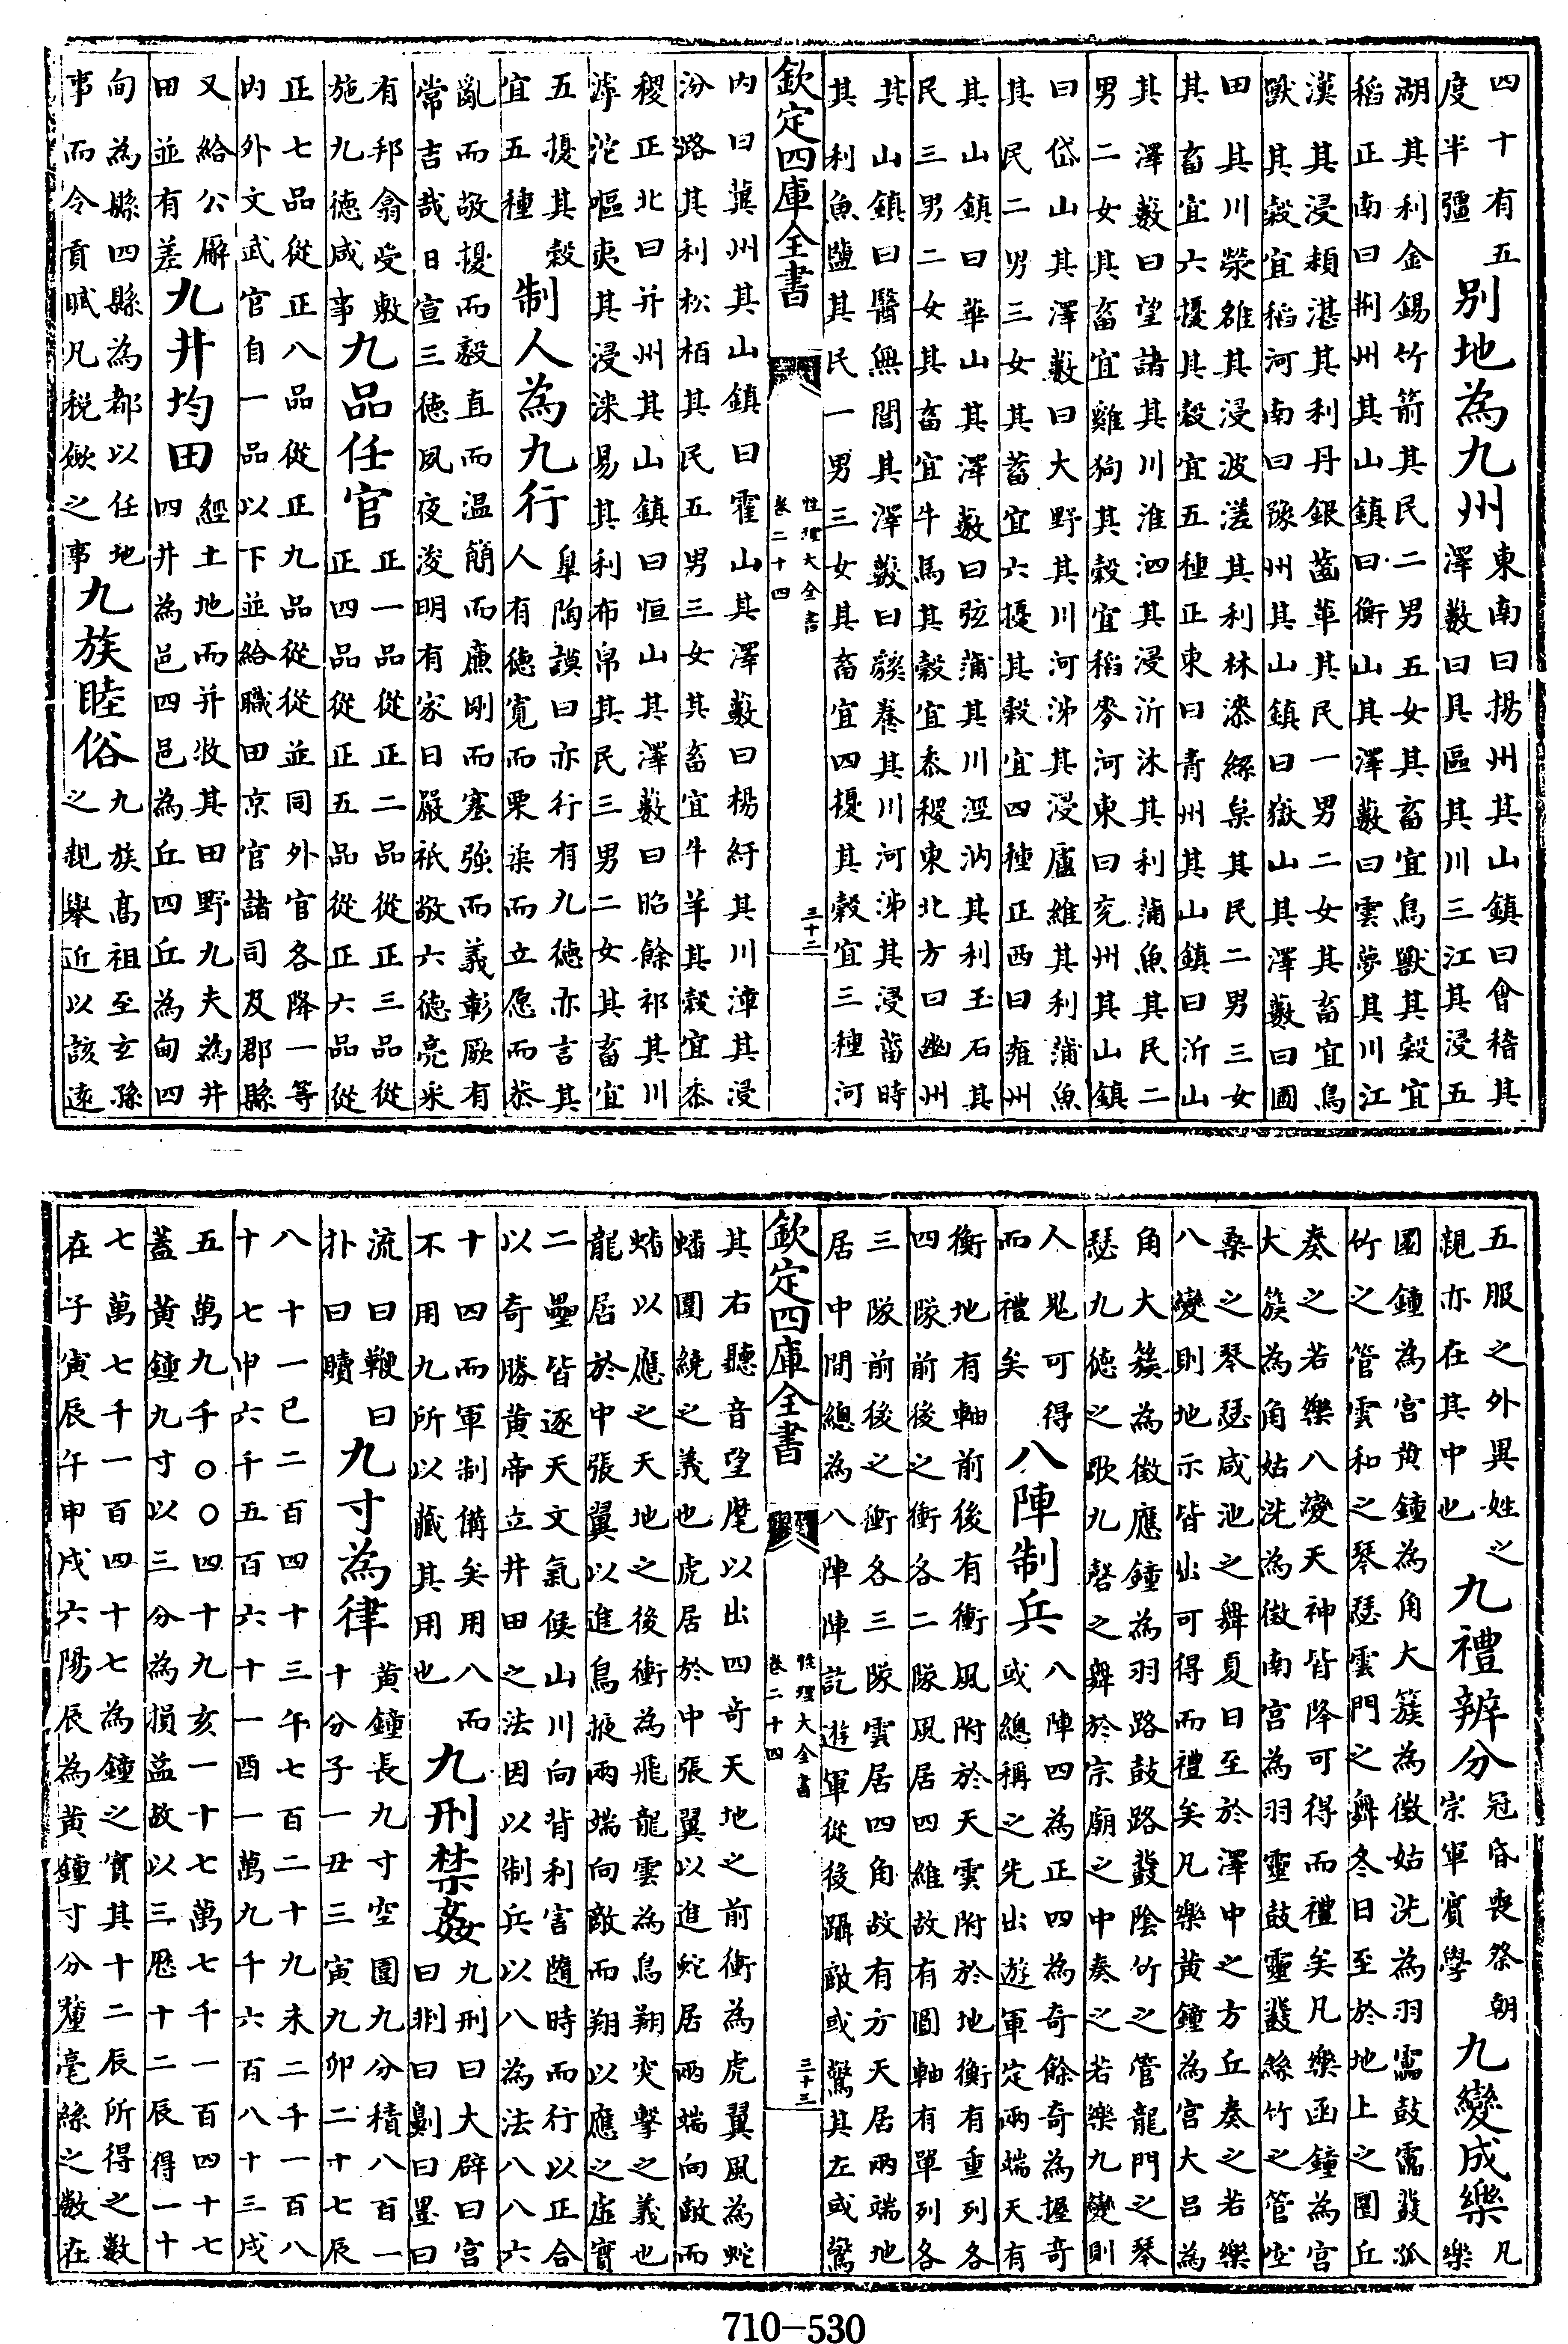 四十有五
度半彊
別地為九州
東南曰揚州其山鎮曰會稽其
澤藪曰具區其川三江其浸五
湖其利金錫竹箭其民二男五女其畜宜鳥獸其穀宜
稻正南曰荆州其山鎮曰衡山其澤藪曰雲夢其川江
漢其浸頴湛其利丹銀齒革其民一男二女其畜宜鳥
獸其穀宜稻河南曰豫州其山鎮曰嶽山其澤藪曰圃
田其川滎雒其浸波溠其利林漆絲枲其民二男三女
其畜宜六擾其穀宜五種正東曰青州其山鎮曰沂山
其澤藪曰望諸其川淮泗其浸沂沭其利蒲魚其民二
男二女其畜宜雞狗其穀宜稻麥河東曰兖州其山鎮
曰岱山其澤藪曰大野其川河泲其浸廬維其利蒲魚
其民二男三女其畜宜六擾其穀宜四種正西曰雍州
其山鎮曰華山其澤藪曰弦蒲其川涇汭其利玉石其
民三男二女其畜宜牛馬其穀宜黍稷東北方曰幽州
其山鎮曰醫無閭其澤藪曰貕養其川河泲其浸菑時
其利魚鹽其民一男三女其畜宜四擾其穀宜三種河
欽定四庫全書
性理大全書
卷二十四
三十二
内曰冀州其山鎮曰霍山其澤藪曰楊紆其川漳其浸
汾潞其利松栢其民五男三女其畜宜牛羊其穀宜黍
稷正北曰并州其山鎮曰恒山其澤藪曰昭餘祁其川
滹沱嘔夷其浸淶易其利布帛其民三男二女其畜宜
五擾其穀
宜五種
制人為九行
臯陶謨曰亦行有九德亦言其
人有德寛而栗柔而立愿而恭
亂而敬擾而毅直而温簡而廉剛而塞強而義彰厥有
常吉哉日宣三德夙夜浚明有家日嚴祇敬六德亮采
有邦翕受敷
施九德咸事
九品任官
正一品從正二品從正三品從
正四品從正五品從正六品從
正七品從正八品從正九品從並同外官各降一等
内外文武官自一品以下並給職田京官諸司及郡縣
又給公廨
田並有差
九井均田
經土地而并收其田野九夫為井
四井為邑四邑為丘四丘為甸四
甸為縣四縣為都以任地
事而令貢賦凡税斂之事
九族睦俗
九族髙祖至玄孫
之親舉近以該逺
五服之外異姓之
親亦在其中也
九禮辨分
冠昏喪祭朝
宗軍賓學
九變成樂
凡
樂
圜鍾為宫黄鍾為角大簇為徴姑洗為羽靁鼓靁鼗孤
竹之管雲和之琴瑟雲門之舞冬日至於地上之圜丘
奏之若樂八變天神皆降可得而禮矣凡樂函鍾為宫
大簇為角姑洗為徴南宫為羽靈鼓靈鼗絲竹之管空
桑之琴瑟咸池之舞夏日至於澤中之方丘奏之若樂
八變則地示皆出可得而禮矣凡樂黄鍾為宫大吕為
角大簇為徴應鍾為羽路鼓路鼗陰竹之管龍門之琴
瑟九德之歌九磬之舞於宗廟之中奏之若樂九變則
人鬼可得
而禮矣
八陣制兵
八陣四為正四為奇餘奇為握奇
或總稱之先出遊軍定兩端天有
衡地有軸前後有衝風附於天雲附於地衡有重列各
四隊前後之衝各二隊風居四維故有圓軸有單列各
三隊前後之衝各三隊雲居四角故有方天居兩端地
居中間總為八陣陣訖遊軍從後躡敵或驚其左或驚
欽定四庫全書
性理大全書
卷二十四
三十三
其右聽音望麾以出四奇天地之前衝為虎翼風為蛇
蟠圍繞之義也虎居於中張翼以進蛇居兩端向敵而
蟠以應之天地之後衝為飛龍雲為鳥翔突擊之義也
龍居於中張翼以進鳥掖兩端向敵而翔以應之虚實
二壘皆逐天文氣候山川向背利害隨時而行以正合
以奇勝黄帝立井田之法因以制兵以八為法八八六
十四而軍制備矣用八而
不用九所以藏其用用也
九刑禁姦
九刑曰大辟曰宫
曰剕曰劓曰墨曰
流曰鞭曰
扑曰贖
九寸為律
黄鐘長九寸空圍九分積八百一
十分子一丑三寅九卯二十七辰
八十一巳二百四十三午七百二十九未二千一百八
十七申六千五百六十一酉一萬九千六百八十三戌
五萬九千〇〇四十九亥一十七萬七千一百四十七
蓋黄鐘九寸以三分為損益故以三歴十二辰得一十
七萬七千一百四十七為鐘之實其十二辰所得之數
在子寅辰午申戌六陽辰為黄鐘寸分釐毫絲之數在
710-530